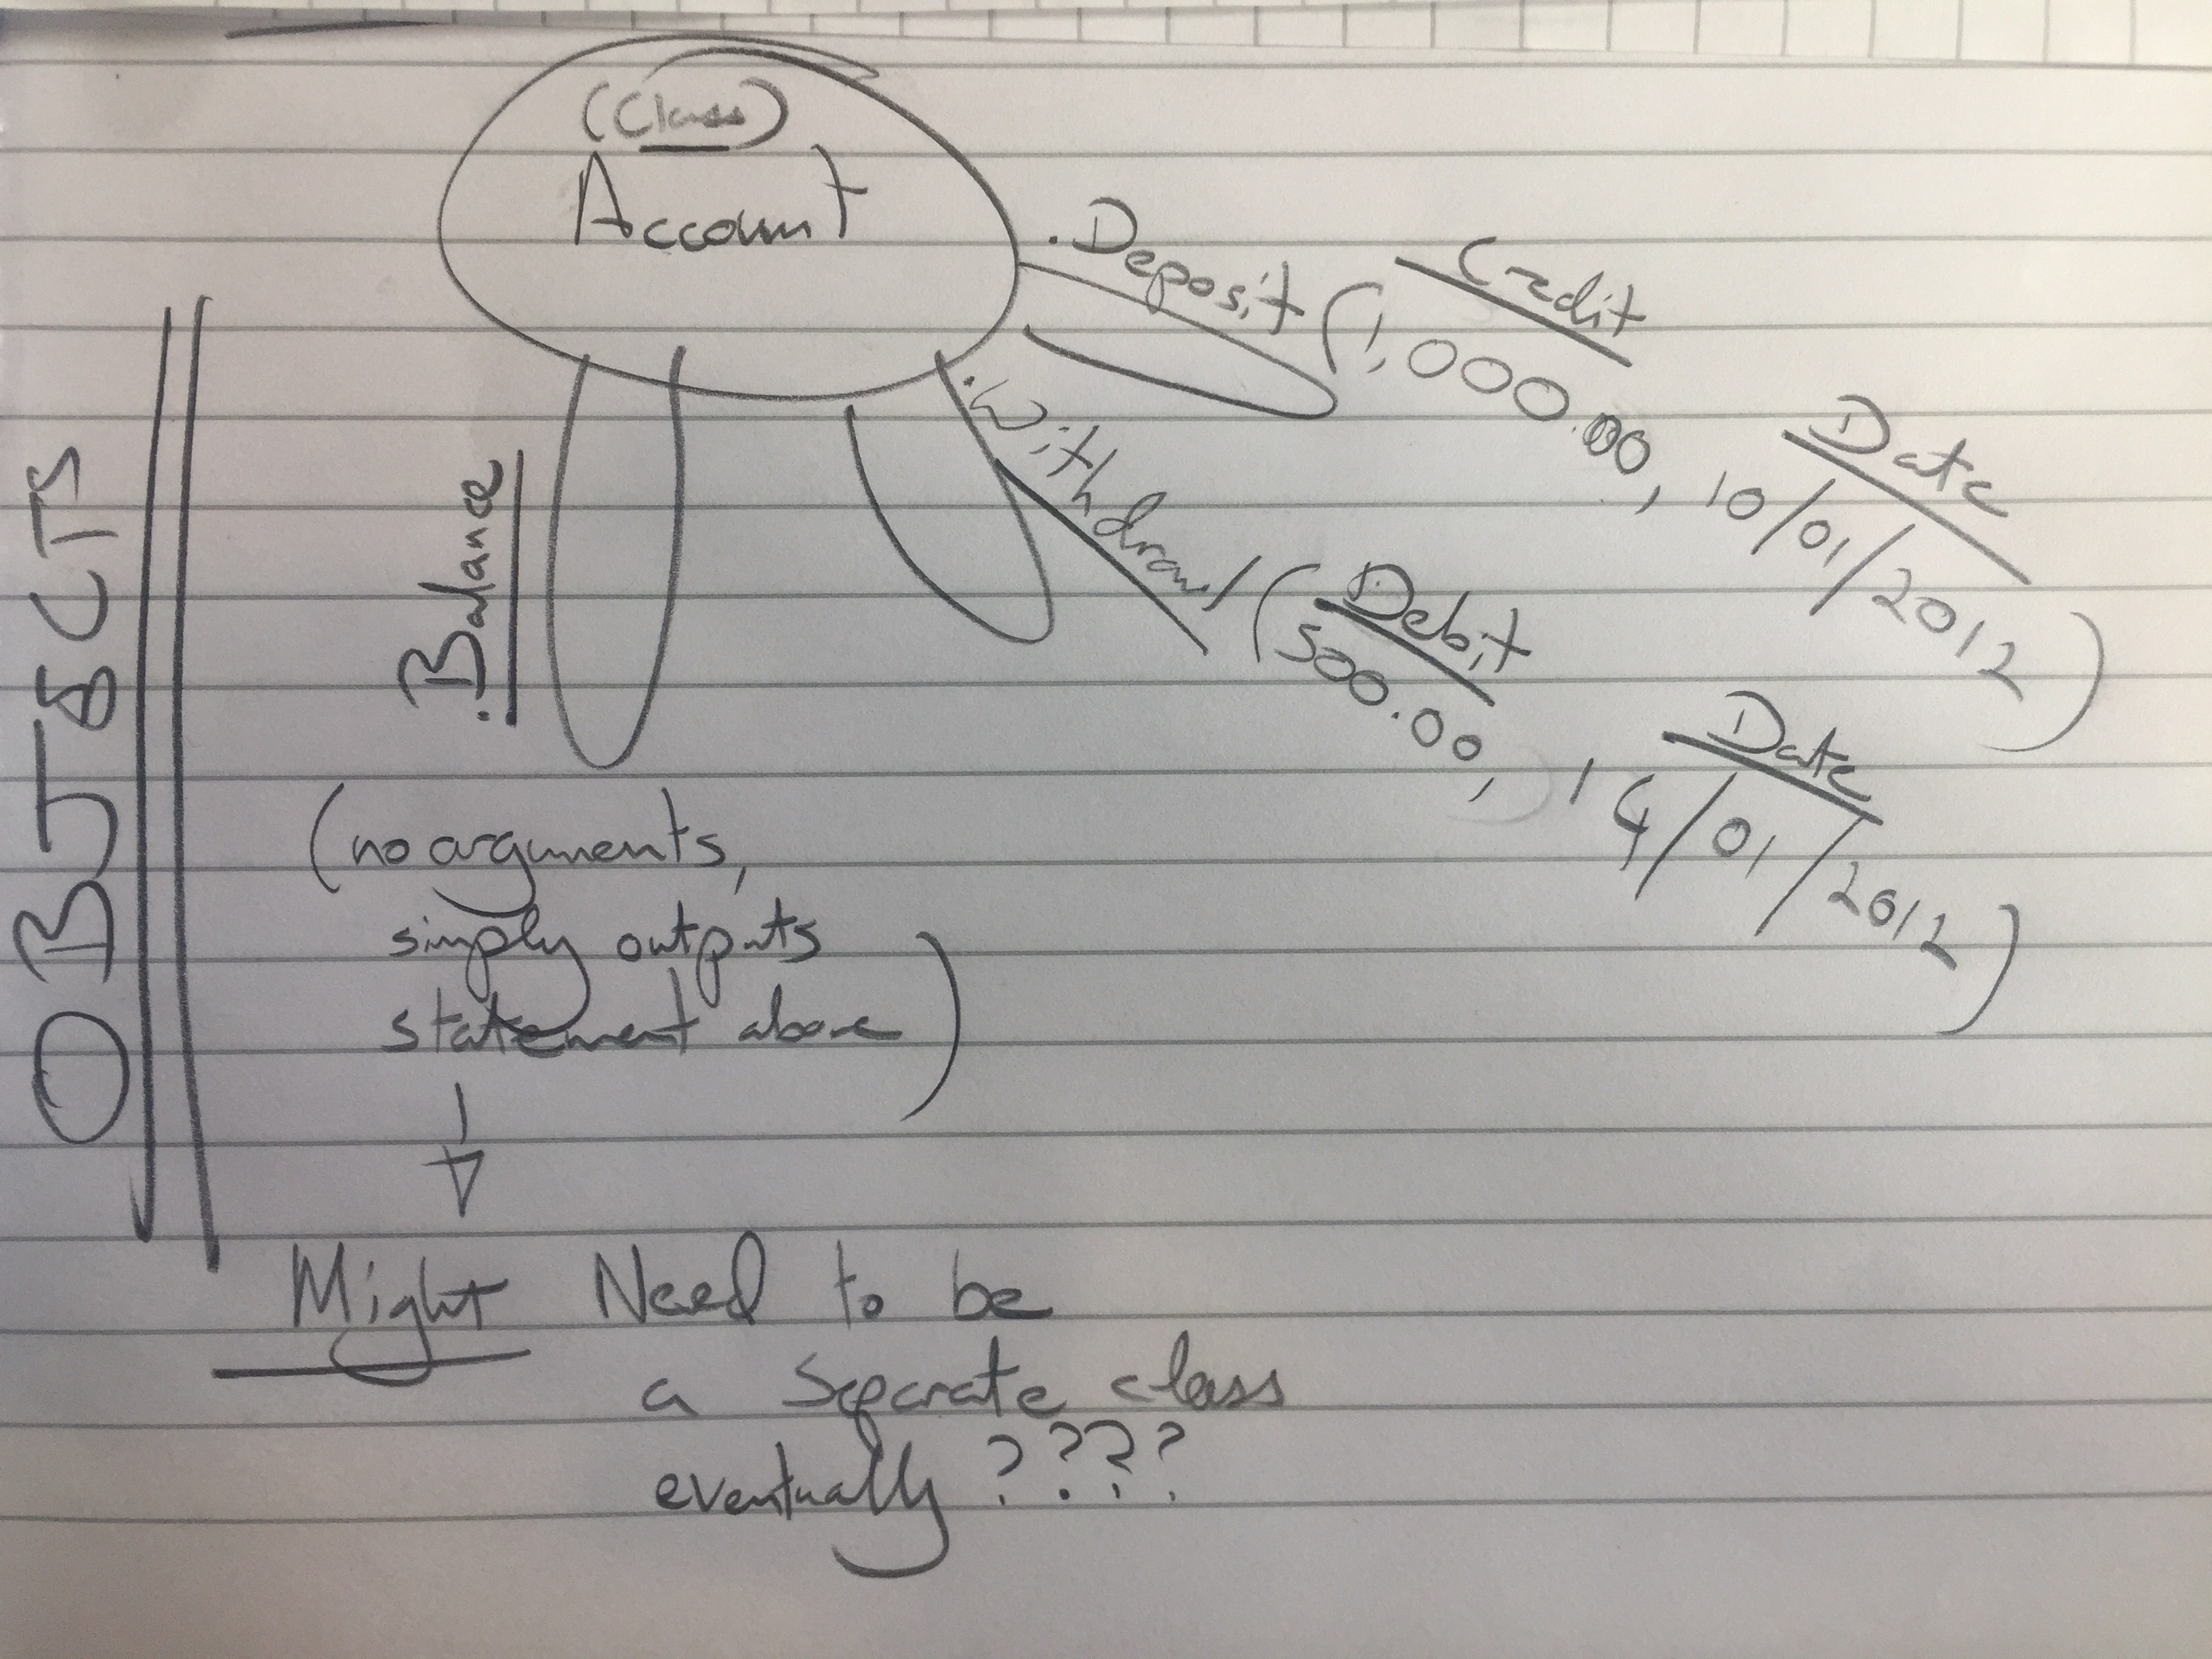 OBJECTS
(Class)
Account
.Deposit (1,000.00, 10/01/2012)
Credit
Date
.Withdrawl (500.00, 14/01/2012)
Debit
Date
.Balance
(no arguments,
simply outputs
statement above)
Might Need to be
a separate class
eventually ????